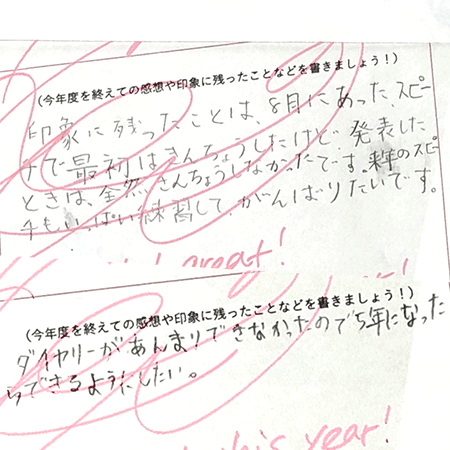 (今年度を終えての感想や印象に残ったことなどを書きましょう!)
印象に残ったことは、8月にあった、スピー
チで最初はきんちょうしたけど、発表した
ときは、全然きんちょうしなかったです。来年のスピー
チもいっぱい練習して、がんばりたいです。
great!
(今年度を終えての感想や印象に残ったことなどを書きましょう!)
ダイヤリーがあんまりできなかったので5年になった
らできるようにしたい。
this year!